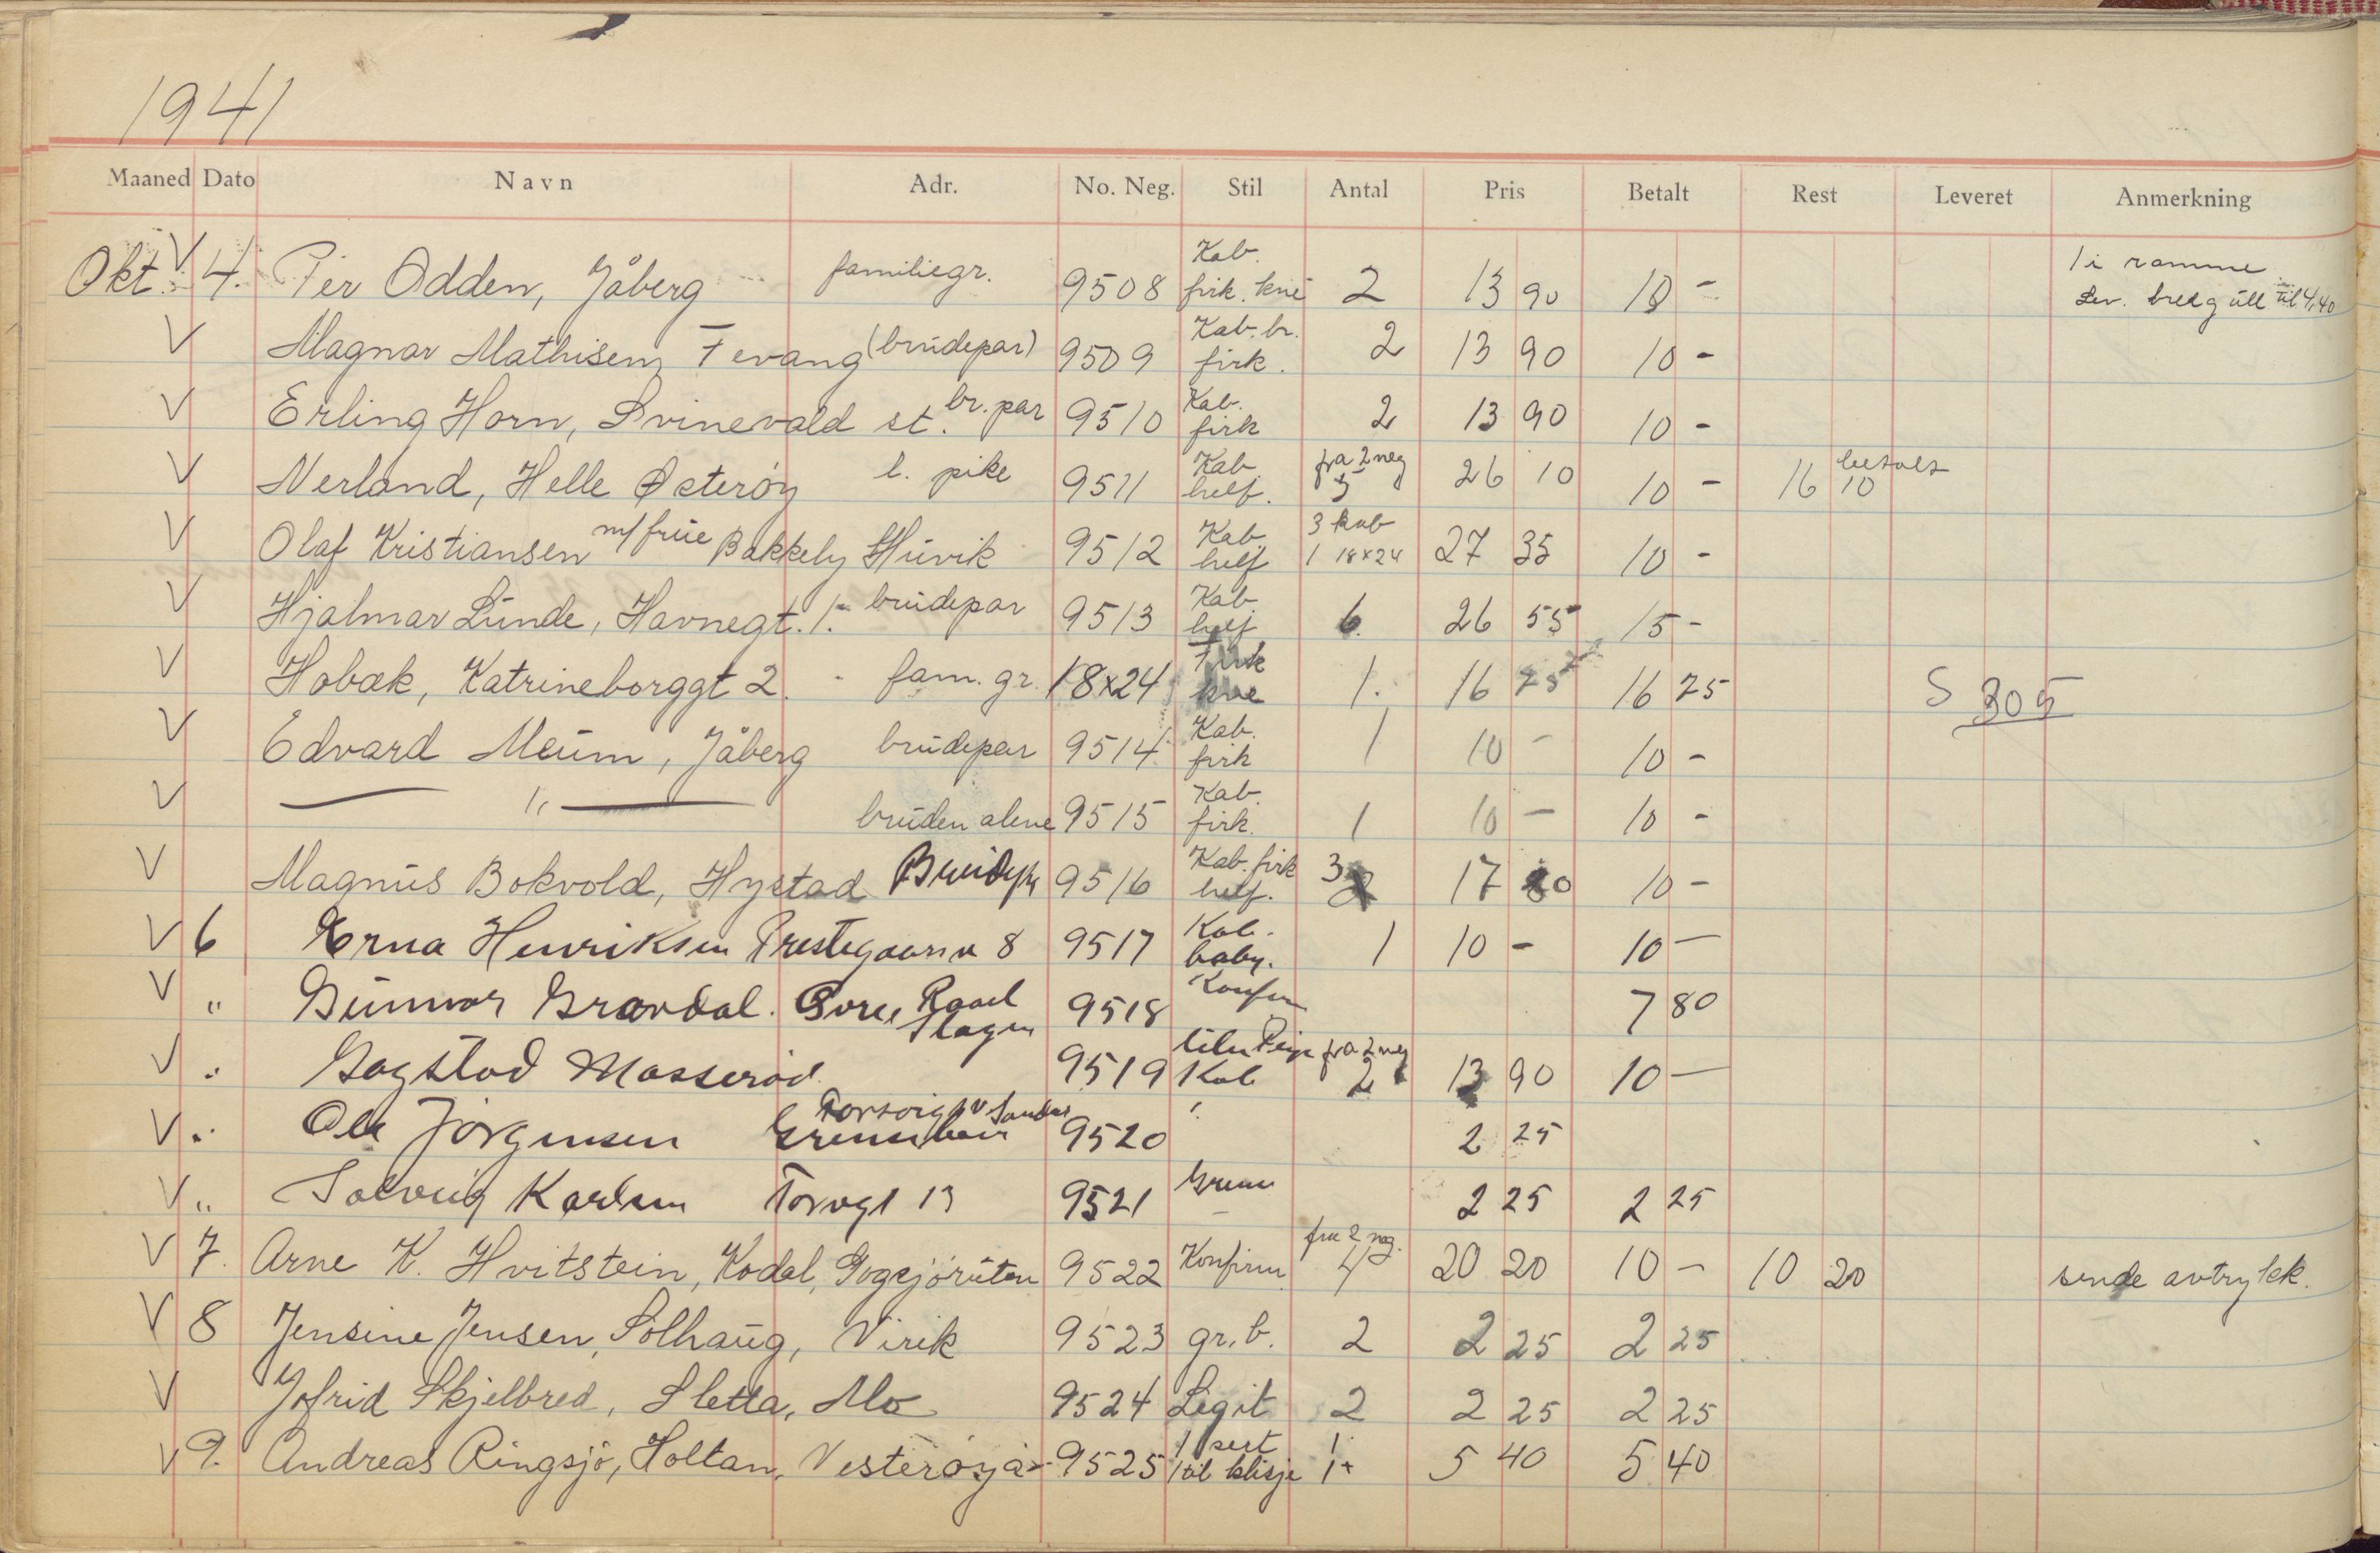 1941
Maaned Dato Navn Adr. No. Neg. Stil Antal Pris Betalt Rest Leveret Anmerkning
Okt. V 4. Per Odden, Jåberg familiegr. 9508 Kab. firk. kne 2 13 90 10 - 1 i ramme
Lev. bred gull til 4,40
V Magnar Mathisen, Tevang (brudepar) 9509 Kab. br. firk. 2 13 90 10 -
V Erling Horn, Svinevald st. br. par 9510 Kab. firk 2 13 90 10 -
V Nerland, Helle Østerøy l. pike 9511 Kab. helf. fra 2 neg 5 26 10 10 - 16 10 betalt
V Olaf Kristiansen m/frue Bakkely Huvik 9512 Kab helf 3 kab 1 18x24 27 35 10 -
V Hjalmar Lunde, Havnegt. 1. - brudepar 9513 Kab helf 6. 26 55 15 -
V Hobæk, Katrineborggt 2. - fam. gr. 18x24 firk kne 1. 16 75 16 75 S 305
V Edvard Meum, Jåberg brudepar 9514 Kab. firk 1 10 - 10 -
V — " — bruden alene 9515 Kab. firk. 1 10 - 10 -
V Magnus Bokvold, Hystad 9516 Kab. firk helf. 3 17 80 10 -
V 6 Erna Henriksen Prestegaarsv 8 9517 Kab. baby. 1 10 - 10 -
V " Gunnar Gravdal. Rael Slagen 9518 Konfirm 7 80
V " Gogstad Masserød 9519 Kab fra 2 neg 2 13 90 10 -
V " Ole Jørgensen Grensebevis 9520 2 25
V " Solveig Karlsen Torvgt 13 9521 Grense 2 25 2 25
V 7. Arne K. Hvitstein, Kodal, Gogsjøruten 9522 Konfirm. fra 2 neg. 4 20 20 10 - 10 20 sende avtrykk.
V 8 Jensine Jensen, Solhaug, Virik 9523 gr. b. 2 2 25 2 25
V Jofrid Skjelbred, Sletta, Mo 9524 Legit 2 2 25 2 25
V 9. Andreas Ringsjø, Holtan, Vesterøya - 9525 1 sert 1 til klisje 1 1+ 5 40 5 40